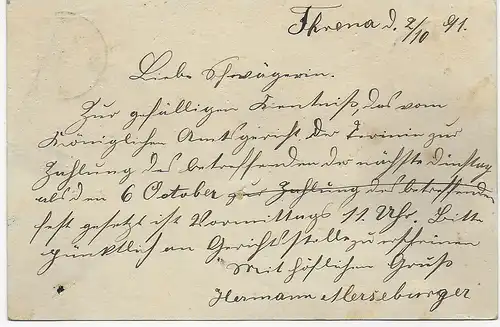 Threna d. 2/10 91.
Liebe Schwägerin.
Zur gefälligen Kentniß, das vom
Königlichen Amtsgericht der Termin zur
Zahlung des betreffenden der nächste Dinstag
als den 6 October zur Zahlung des betreffenden
fest gesetzt ist Vormittags 11 Uhr, Bitte
pünktlich an Gerichtsstelle zu erscheinen
Mit höflichen Gruß
Hermann Merseburger